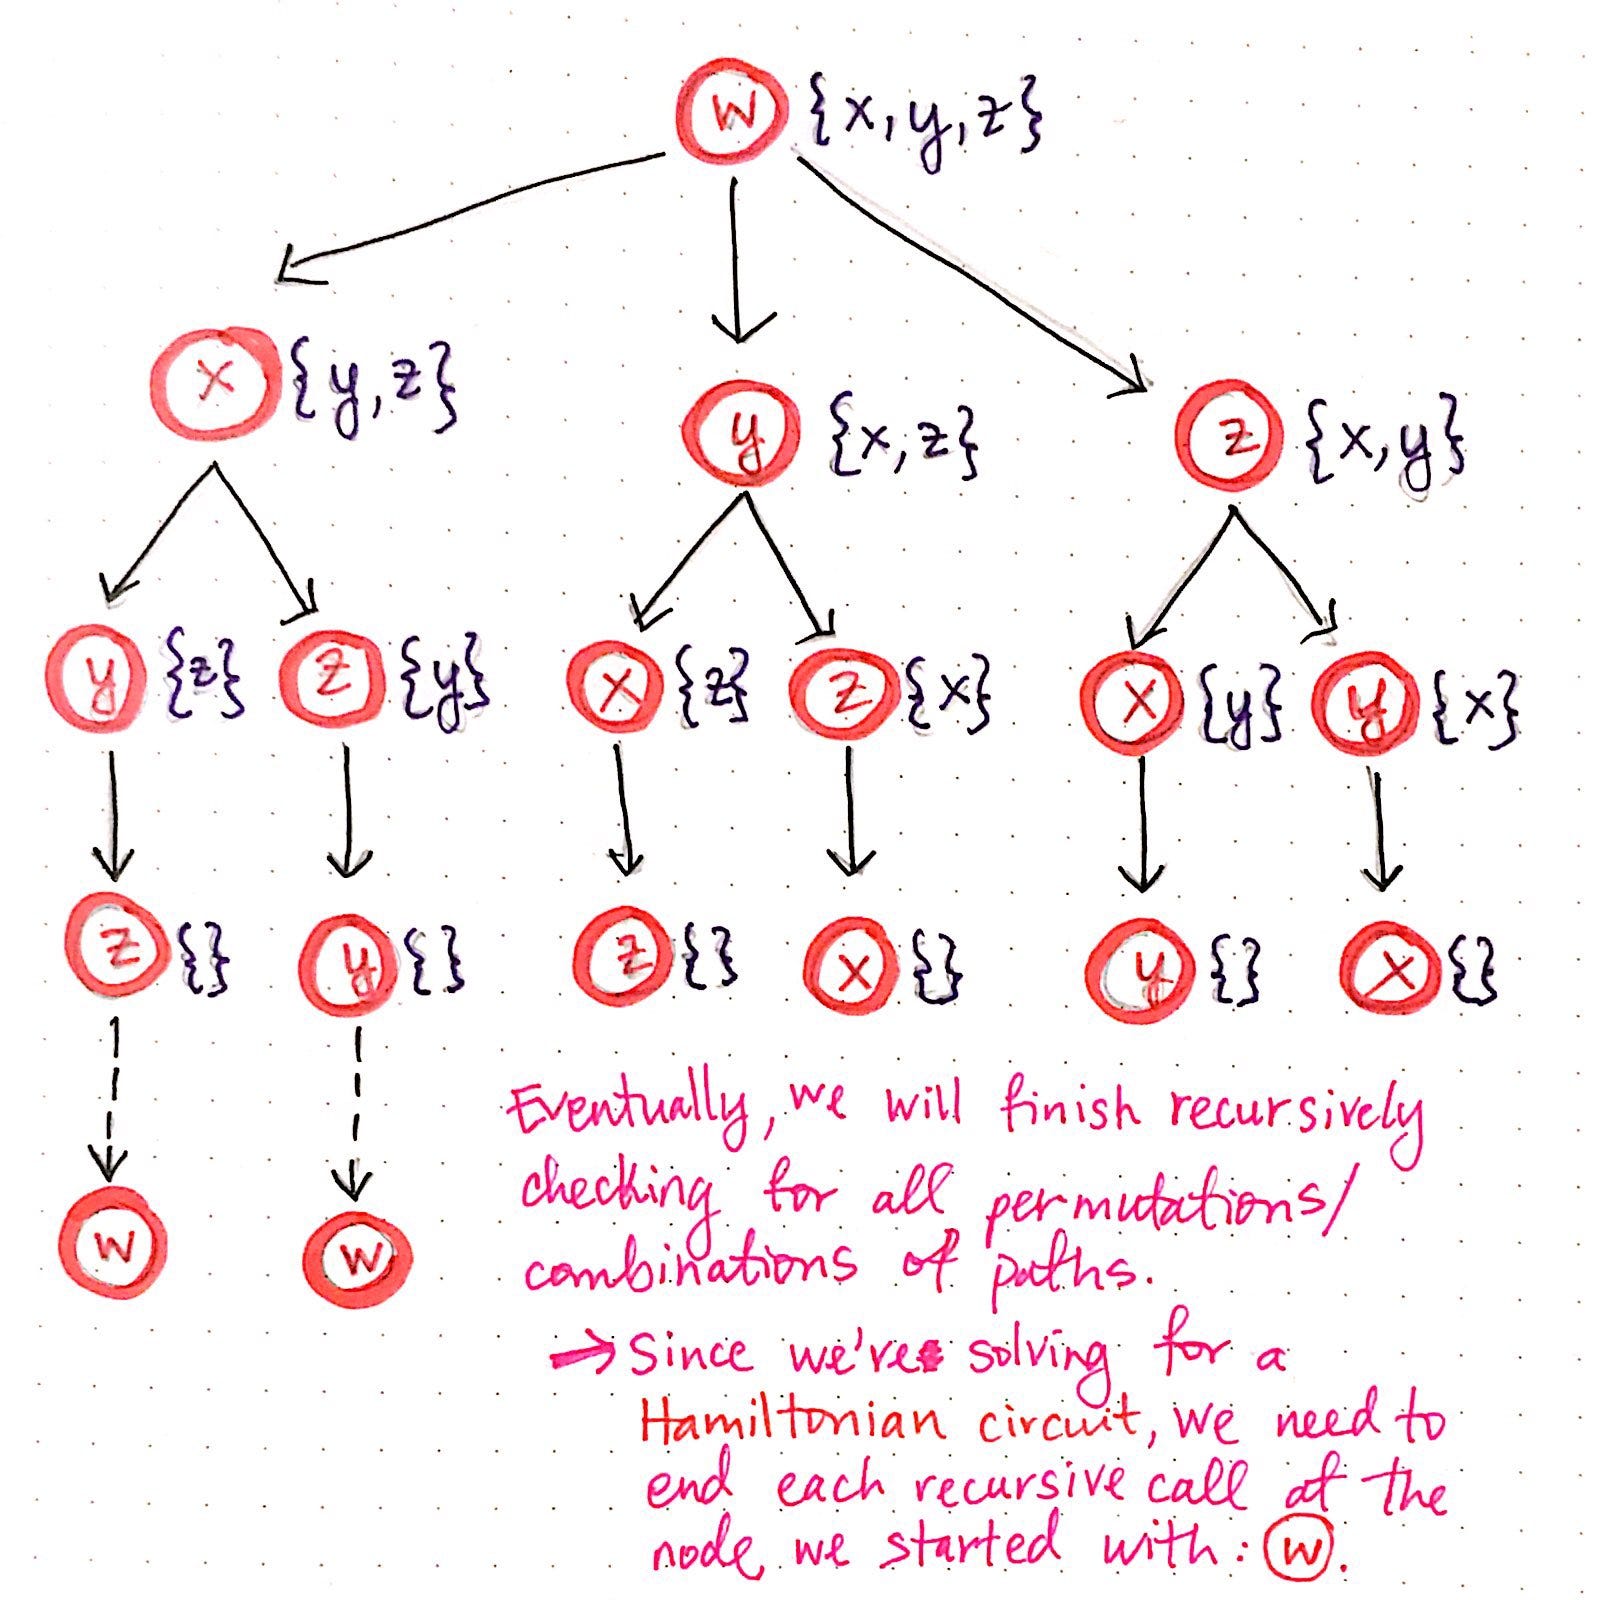 w {x, y, z}
x {y, z}
y {x, z}
z {x, y}
y {z} z {y} x {z} z {x} x {y} y {x}
z {} y {} z {} x {} y {} x {}
w w
Eventually, we will finish recursively
checking for all permutations/
combinations of paths.
→ Since we've solving for a
Hamiltonian circuit, we need to
end each recursive call at the
node we started with: w.